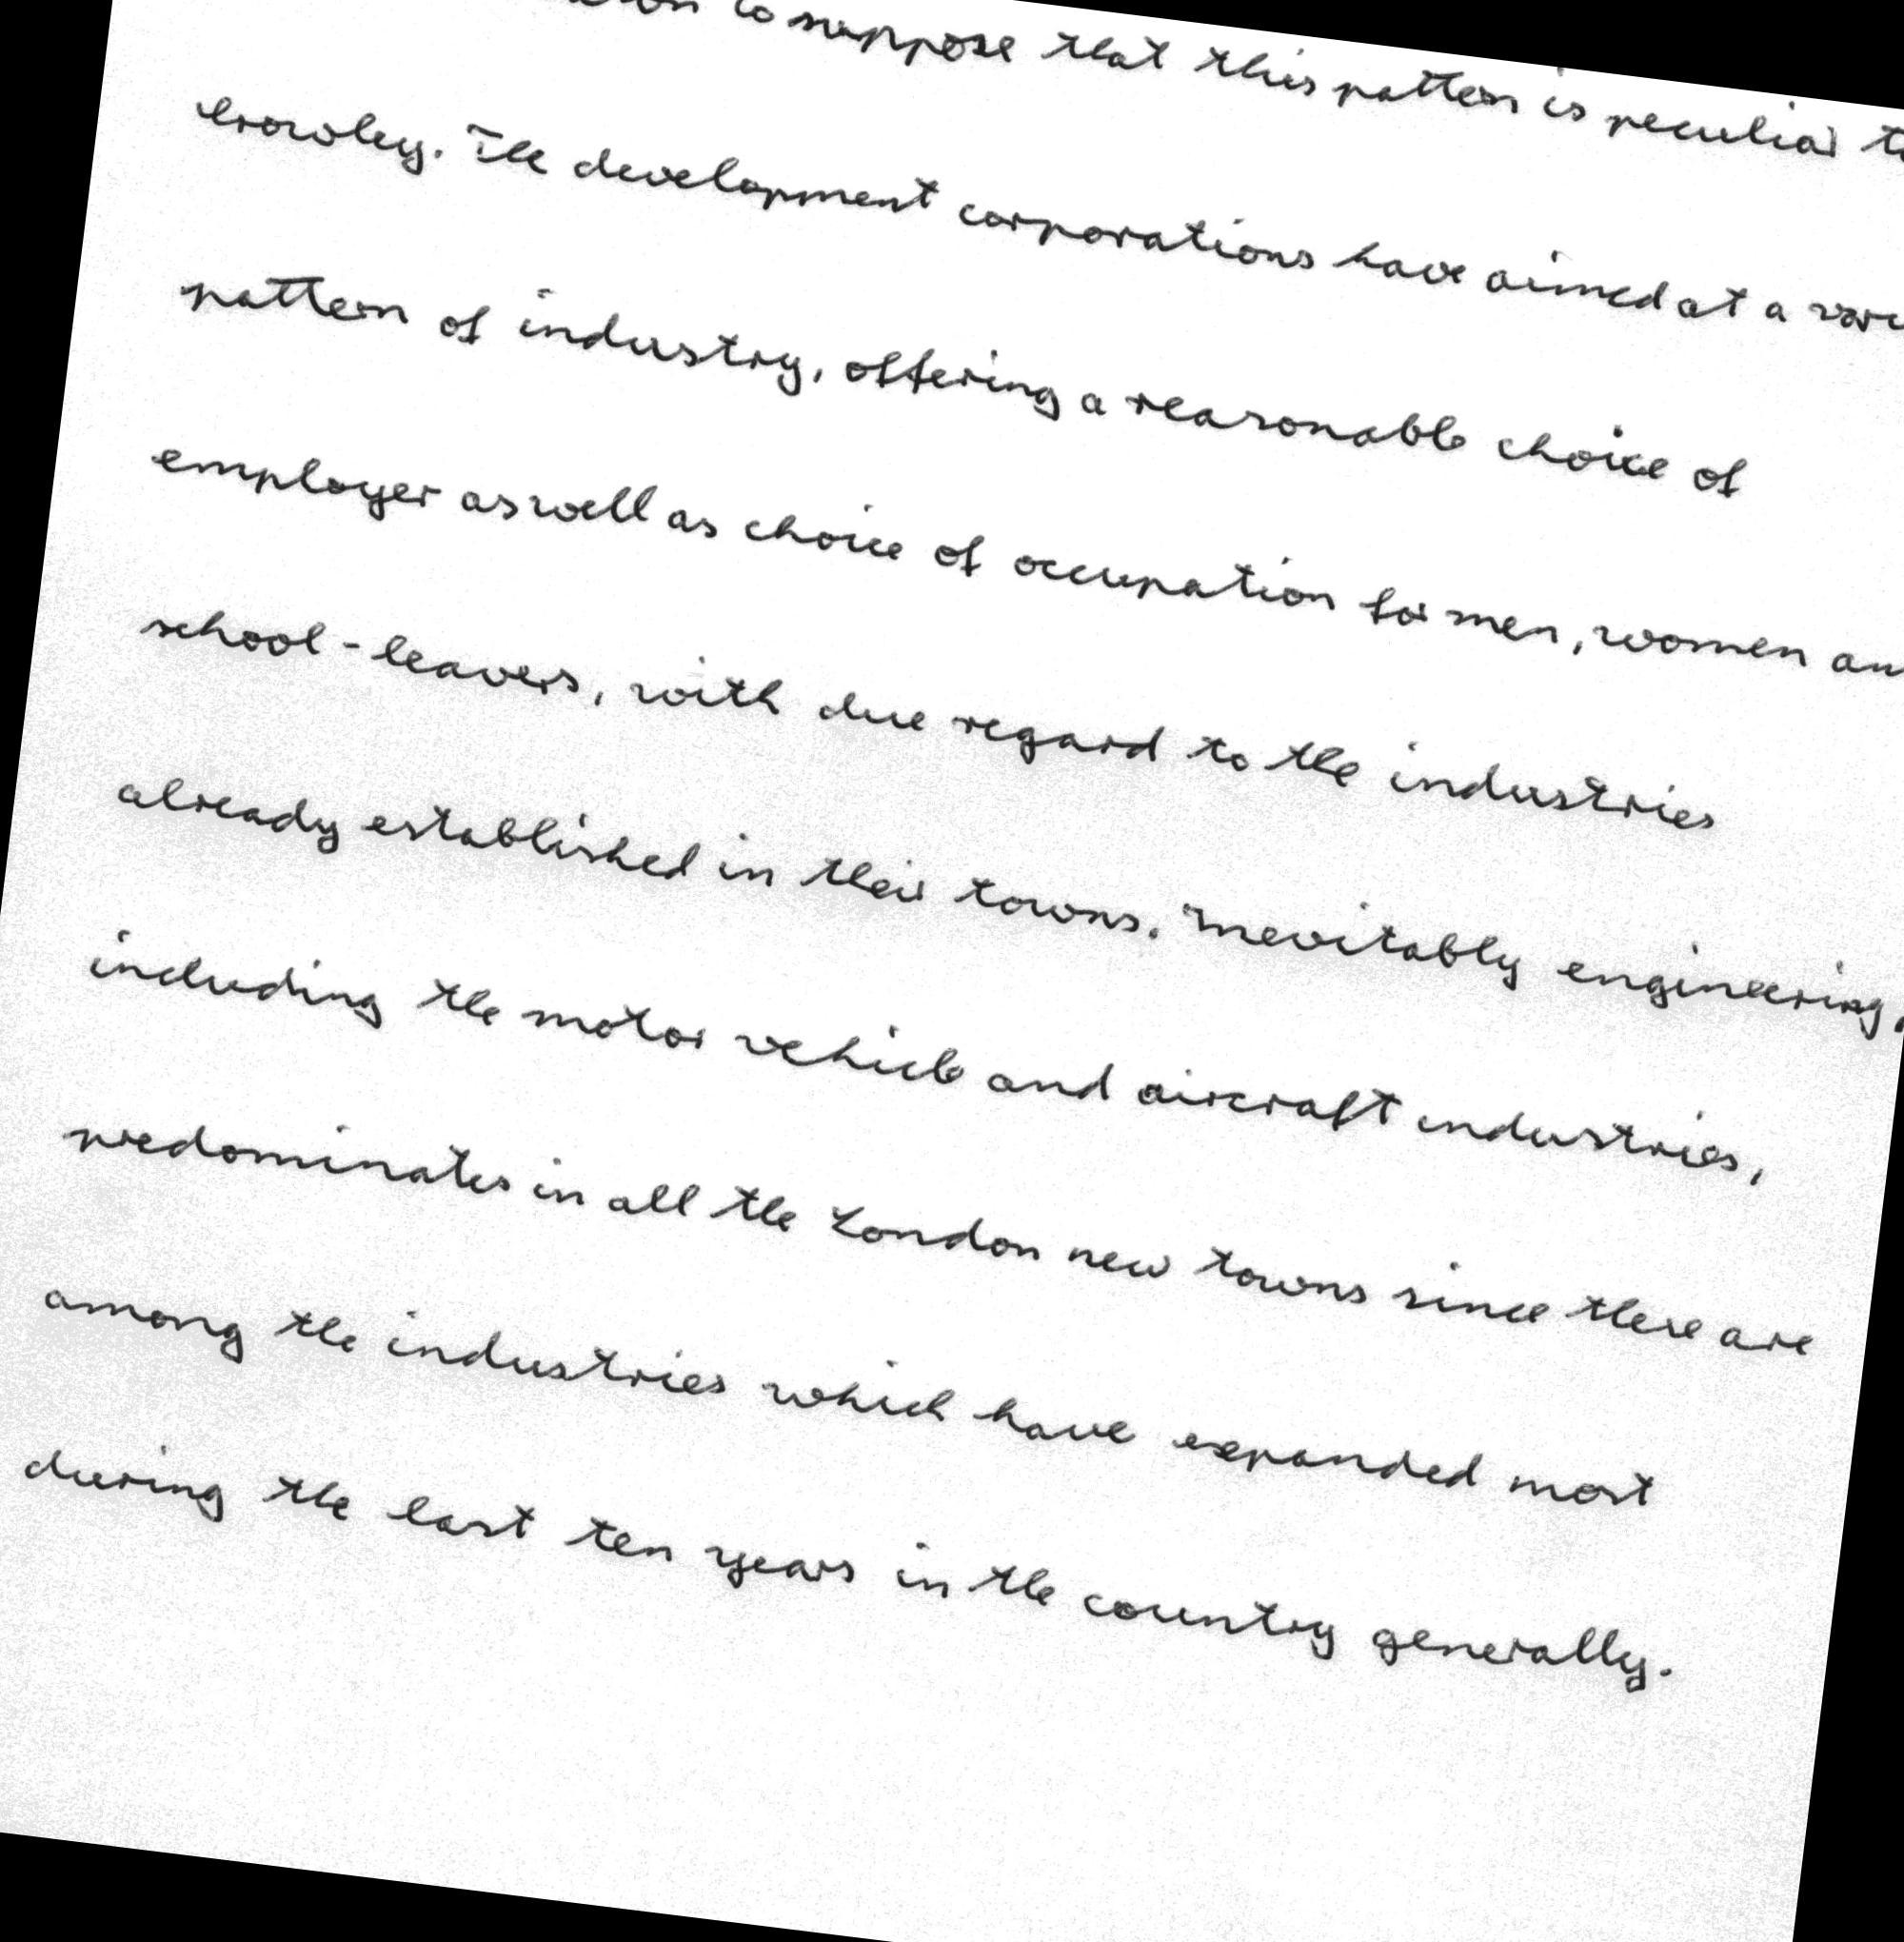 to suppose that this pattern is peculiar to
Crawley. The development corporations have aimed at a
pattern of industry, offering a reasonable choice of
employer as well as choice of occupation for men, women
school-leavers, with due regard to the industries
already established in their towns. Inevitably engineering,
including the motor vehicle and aircraft industries,
predominates in all the London new towns since these are
among the industries which have expanded most
during the last ten years in the country generally.